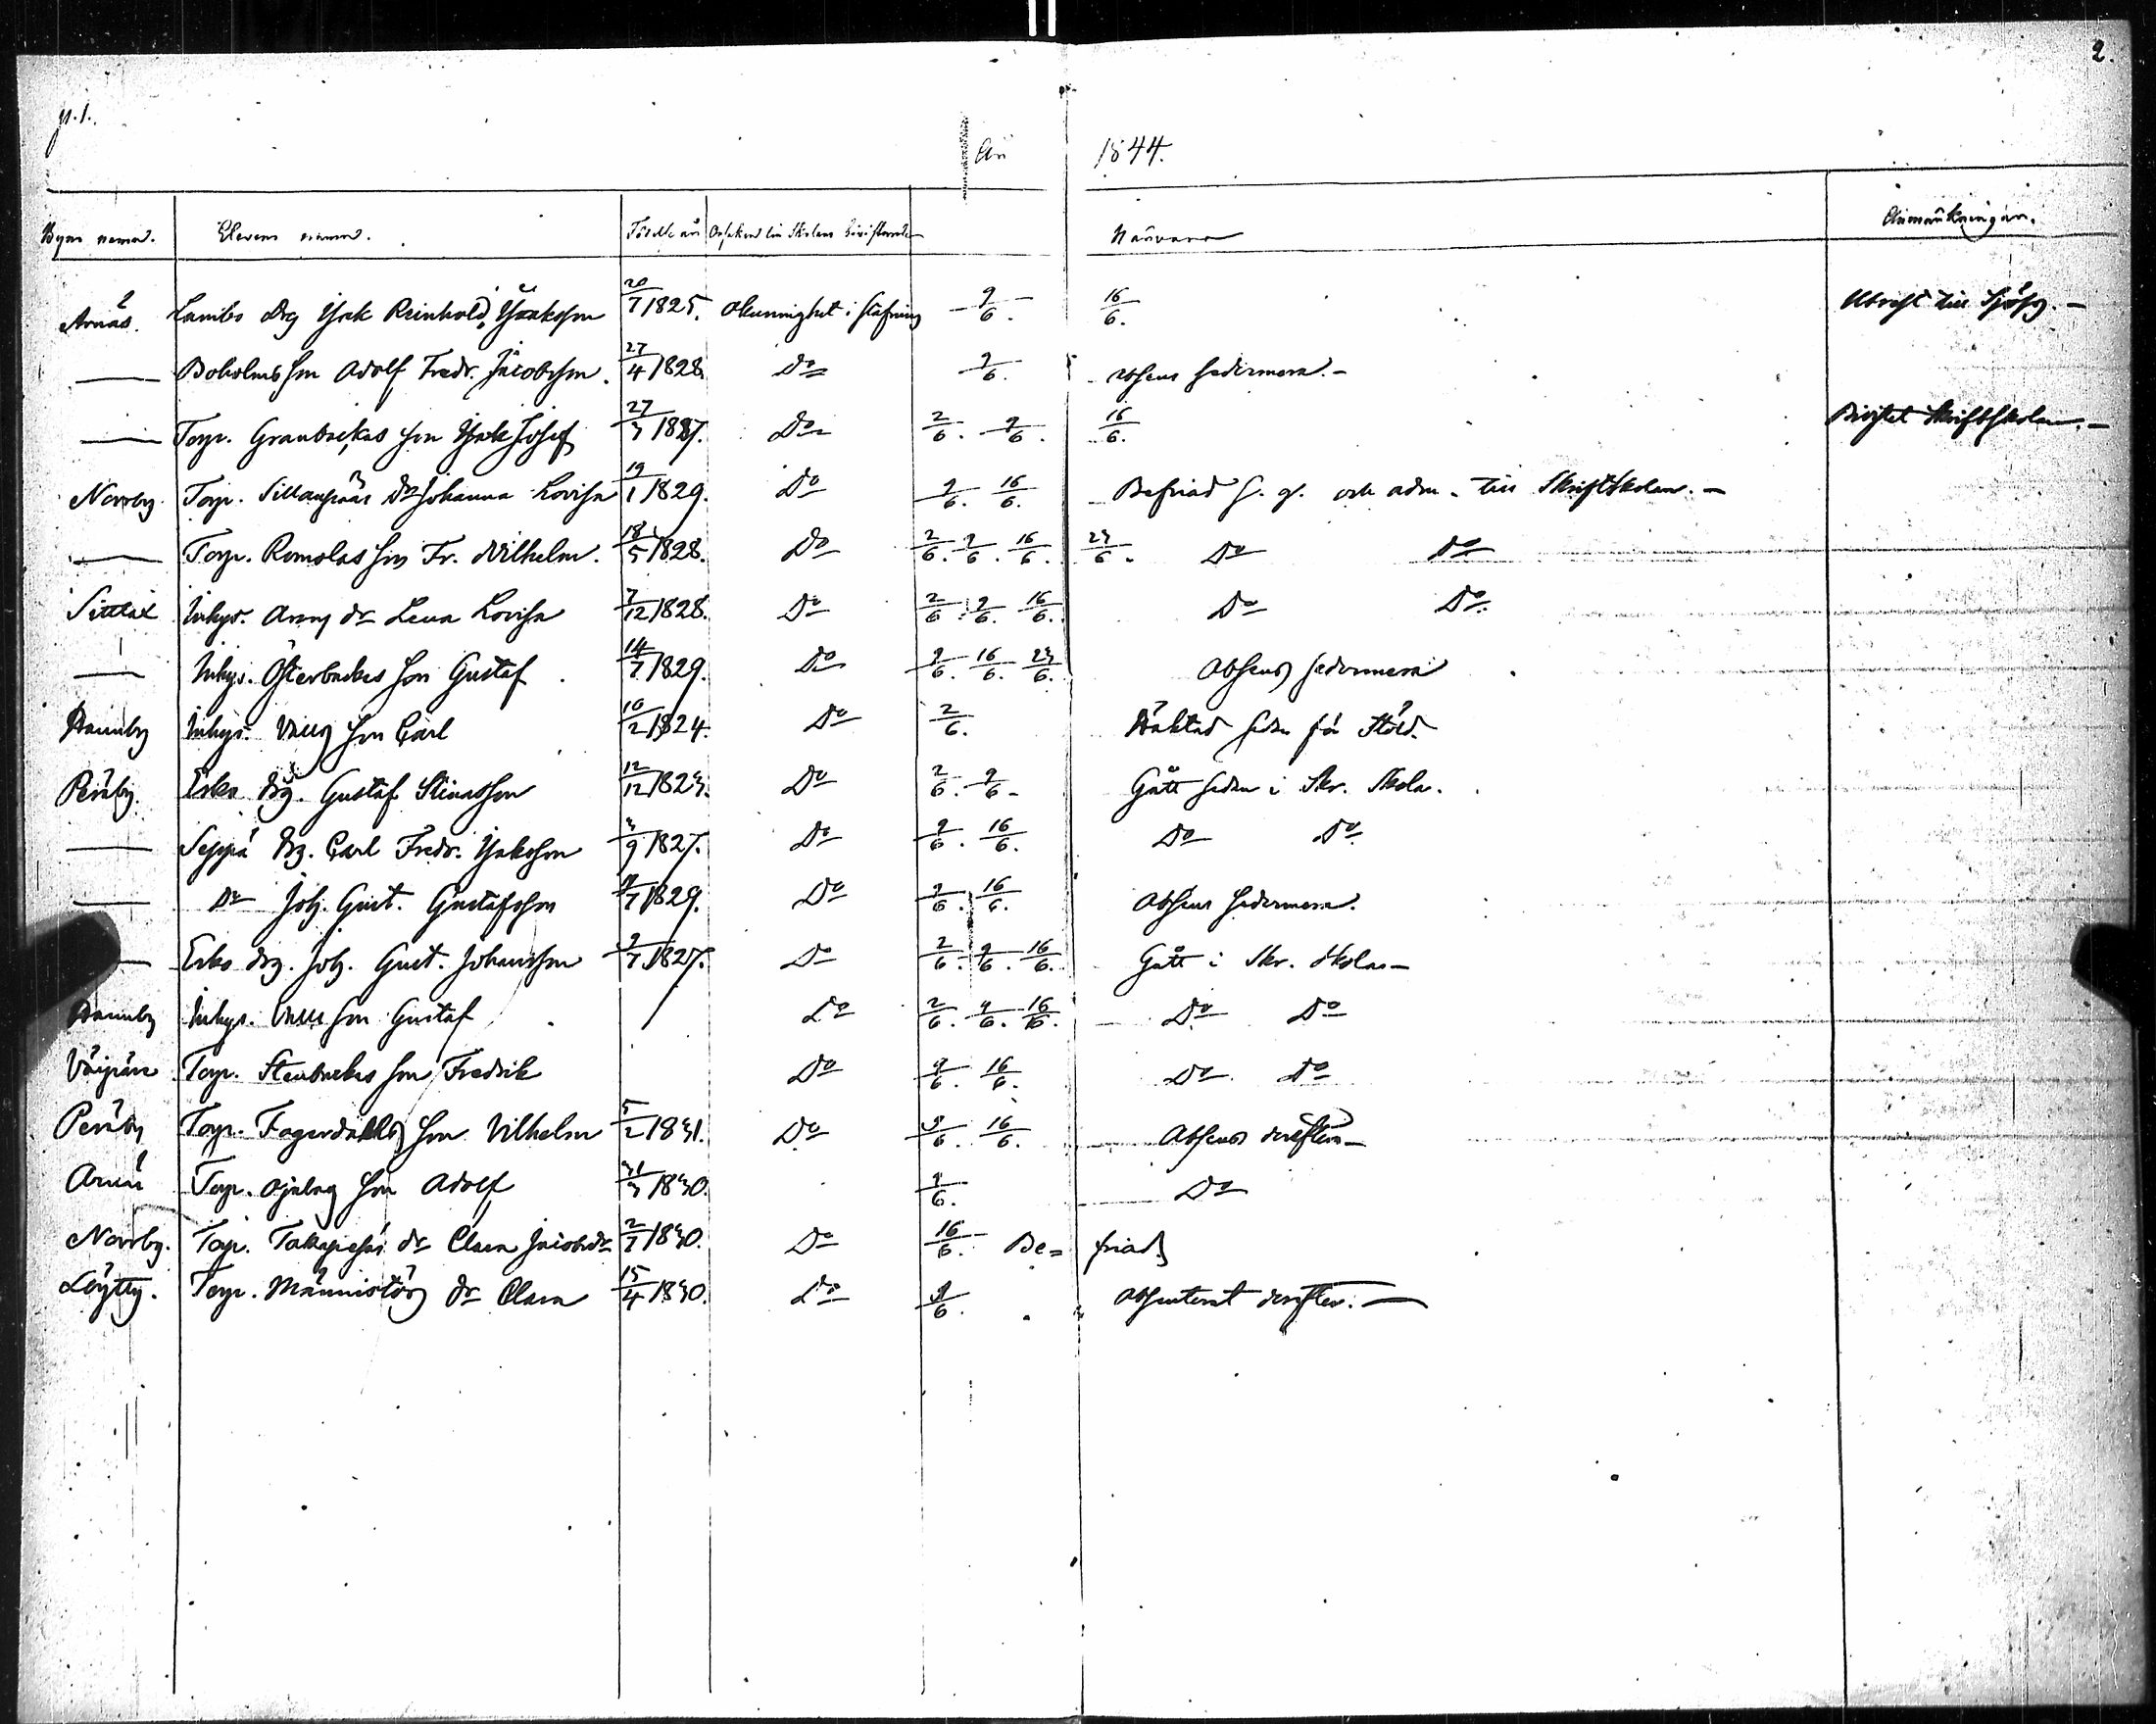 p. 1.
2.
År 1844.
Byns namn. Elevens namn. Födelse år Orsaken till Skolans bivistande Närvaro Anmärkningar.
Arnäs. Lambo drg Isak Reinhold Isaksson 20/7 1825. Okunnighet i stafning 9/6. 16/6. Utrest till Sjöss. —
— Boholms son Adolf Fredr. Jacobsson. 27/4 1828. Do 9/6. absens sedermera. —
— Torp. Granbackas son Isak Josef 27/3 1827. Do 2/6. 9/6. 16/6. Bivistat Skriftskolan. —
Norrby. Torp. Sillanpääs dr Johanna Lovisa 19/1 1829. Do 9/6. 16/6. Befriad s. g. och adm. till Skriftskolan. —
— Torp. Romolas son Fr. Wilhelm. 18/5 1828. Do 2/6. 9/6. 16/6. 23/6. Do Do
Sittlax Inhys. dr Lena Lovisa 7/12 1828. Do 2/6. 9/6. 16/6. Do Do
— Inhys. Österbackas son Gustaf 14/7 1829. Do 9/6. 16/6. 23/6. Absens sedermera
Hannby Inhys. son Carl 10/2 1824. Do 2/6. Häktad sedan för Stöld.
Peräby. Erko drg. Gustaf Stinasson 12/12 1823. Do 2/6. 9/6. Gått sedan i Skr. Skola.
— Seppä drg. Carl Fredr. Isaksson 3/9 1827. Do 9/6. 16/6. Do Do
— Do Joh. Gust. Gustafsson /7 1829. Do 9/6. 16/6. Absens sedermera.
— Erko drg. Joh. Gust. Johansson 9/7 1827. Do 2/6. 9/6. 16/6. Gått i Skr. Skola —
Hannby Inhys. son Gustaf Do 2/6. 9/6. 16/6. Do Do
Torp. Stenbackas son Fredrik Do 9/6. 16/6. Do Do
Peräby Torp. Fagerdahls son Vilhelm 5/2 1831. Do 9/6. 16/6. Absens derefter —
Torp. son Adolf 31/3 1830. 9/6. Do
Norrby. Torp. dr Clara Jacobsdr 2/7 1830. Do 16/6. Be= friad
Löytty. Torp. Männistös dr Clara 15/4 1830. Do 9/6. absenterat derefter. —